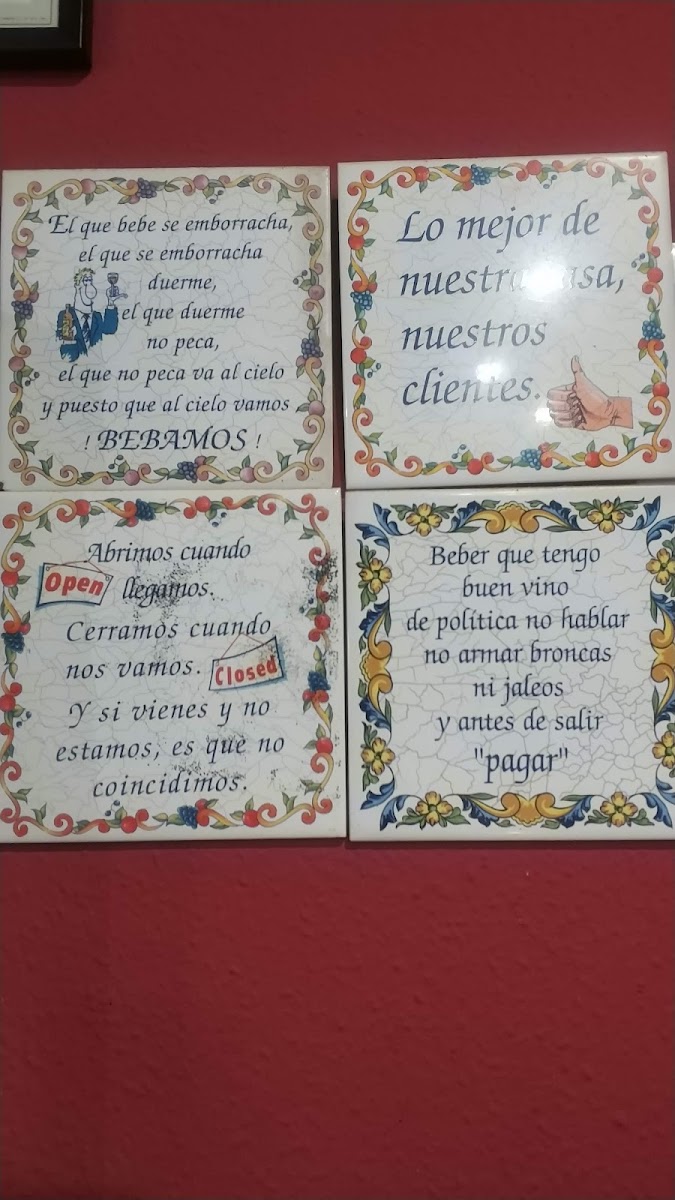 El que bebe se emborracha,
el que se emborracha
duerme,
el que duerme
no peca,
el que no peca va al cielo
y puesto que al cielo vamos
! BEBAMOS !
Lo mejor de
nuestra casa,
nuestros
clientes.
Abrimos cuando
Open llegamos.
Cerramos cuando
nos vamos. Closed
Y si vienes y no
estamos, es que no
coincidimos.
Beber que tengo
buen vino
de política no hablar
no armar broncas
ni jaleos
y antes de salir
"pagar"